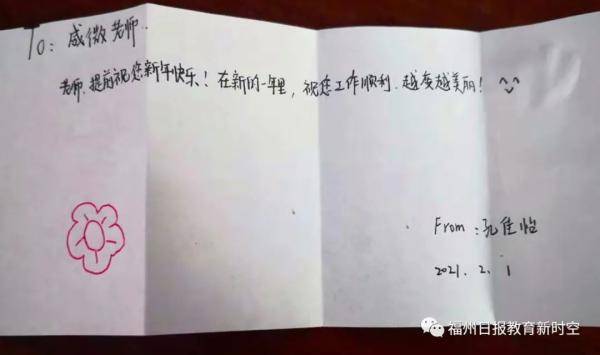 To: 咸微老师.
老师,提前祝您新年快乐！在新的一年里，祝您工作顺利、越变越美丽！
From:孔佳怡
2021.2.1
福州日报教育新时空